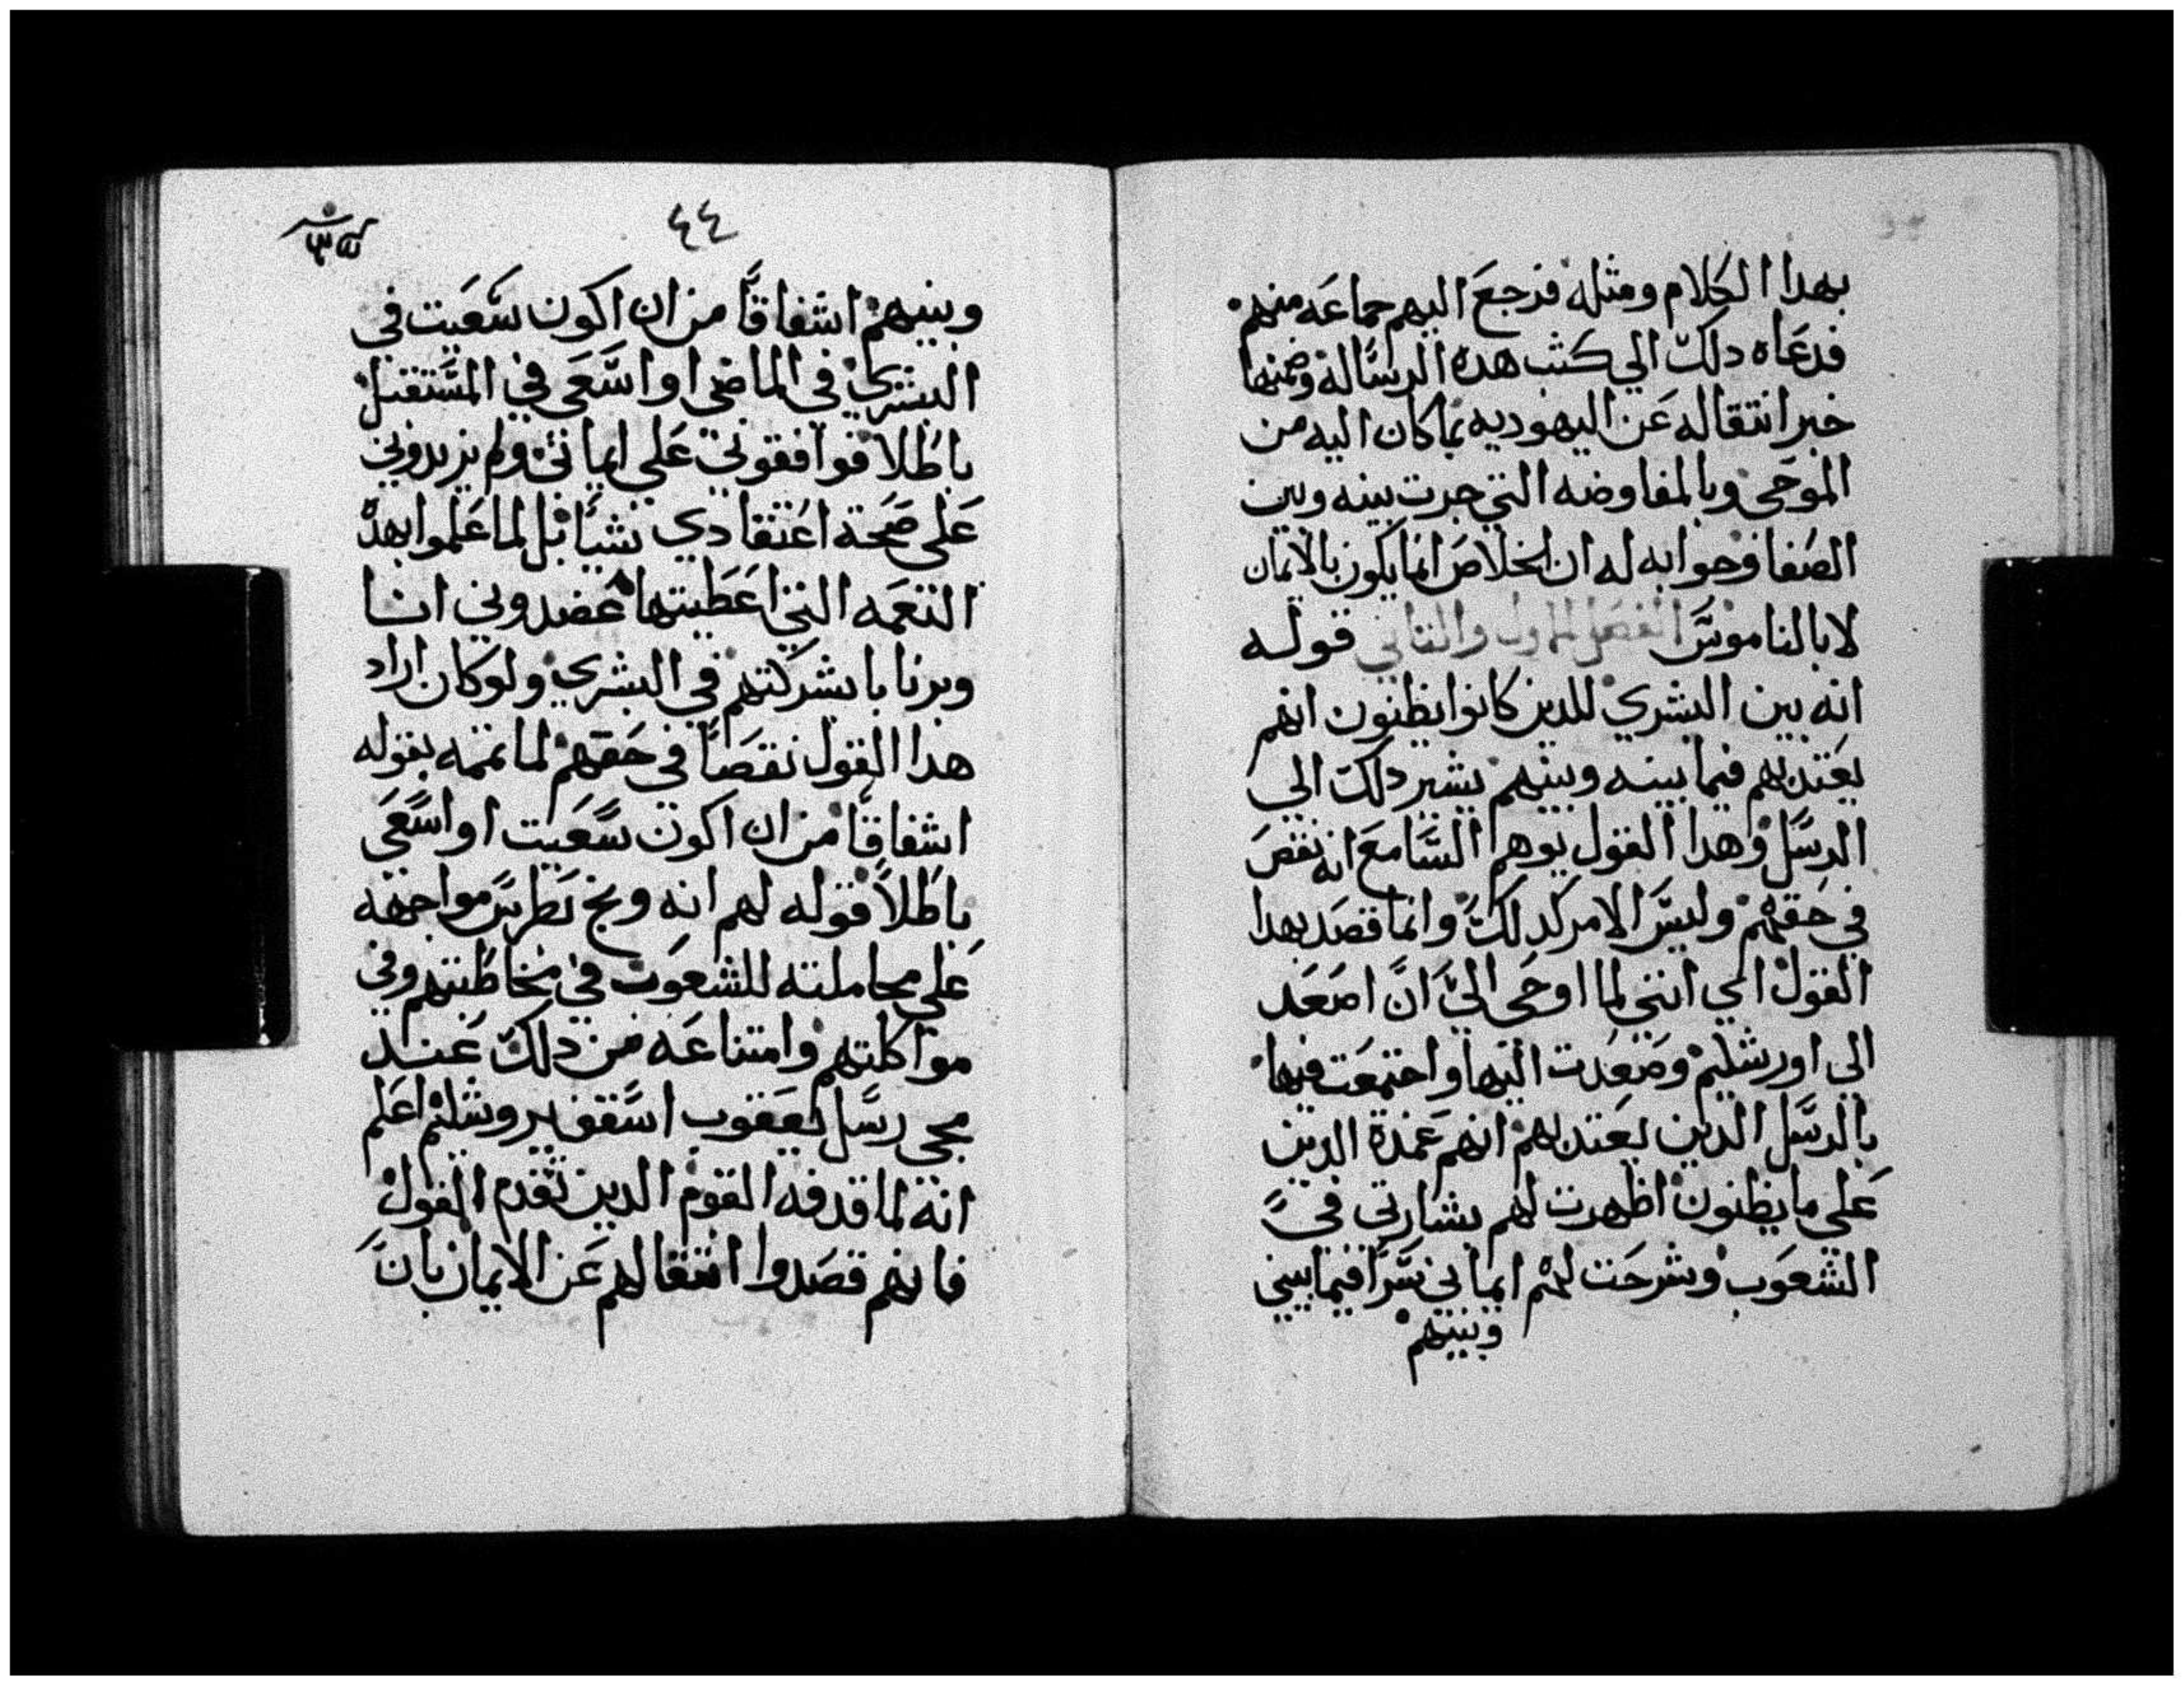 بهدا الكلام ومثله فرجع اليهم جماعه منهم
فدعاه دلك الي كتب هده الرساله وضمنها
خبر انتقاله عن اليهوديه بما كان اليه من
الموحي وبالمفاوضه التي جرت بينه وبين
الصفا وجوابه له ان الخلاص انما يكون بالايمان
لا بالناموس الفصل الاول والثاني قوله
انه بين البشري للدين كانوا يظنون انهم
يعتد بهم فيما بينه وبينهم يشير دلك الي
الرسل وهدا القول يوهم السامع انه نقص
في حقهم وليس الامر كدلك وانما قصد بهدا
القول اي انني لما اوحي الي ان اصعد
الي اورشليم وصعدت اليها واجتمعت فيها
بالرسل الدين يعتد بهم انهم عمدة الدين
علي ما يظنون اظهرت لهم بشارتي في
الشعوب وشرحت لهم ايماني سرا فيما بيني
وبينهم
٤٤
وبينهم اشفاقا من ان اكون سعيت في
البشري في الماضي او اسعي في المستقبل
باطلا فوافقوني علي ايماني ولم يزيدوني
علي صحة اعتقادي شيا بل لما علموا بهده
النعمه التي اعطيتها عضدوني انا
وبرنابا بشركتهم في البشري ولو كان اراد
هدا القول نقصا في حقهم لما تممه بقوله
اشفاقا من ان اكون سعيت او اسعي
باطلا قوله لهم انه وبخ بطرس مواجهه
علي مجاملته للشعوب في مخاطبتهم وفي
مواكلتهم وامتناعه من دلك عند
مجي رسل يعقوب اسقف يروشليم اعلم
انه لما قدفه القوم الدين تقدم القول
فانهم قصدوا انتقالهم عن الايمان بان